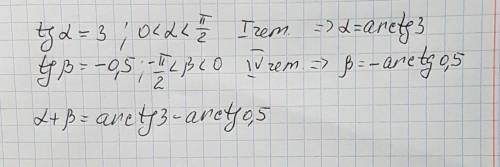 tgα = 3 ; 0<α<π/2 I чет. => α = arctg3
tgβ = -0,5 ; -π/2<β<0 IV чет. => β = -arctg0,5
α+β = arctg3 - arctg0,5